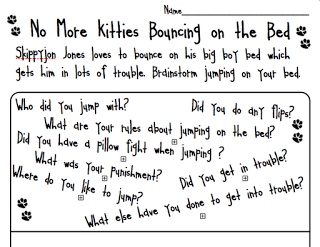 Name
No More Kitties Bouncing on the Bed
Skippyjon Jones loves to bounce on his big boy bed which
gets him in lots of trouble. Brainstorm jumping on your bed.
Who did you jump with?
Did you do any flips?
What are your rules about jumping on the bed?
Did you have a pillow fight when jumping ?
What was your punishment?
Did you get in trouble?
Where do you like to jump?
What else have you done to get into trouble?